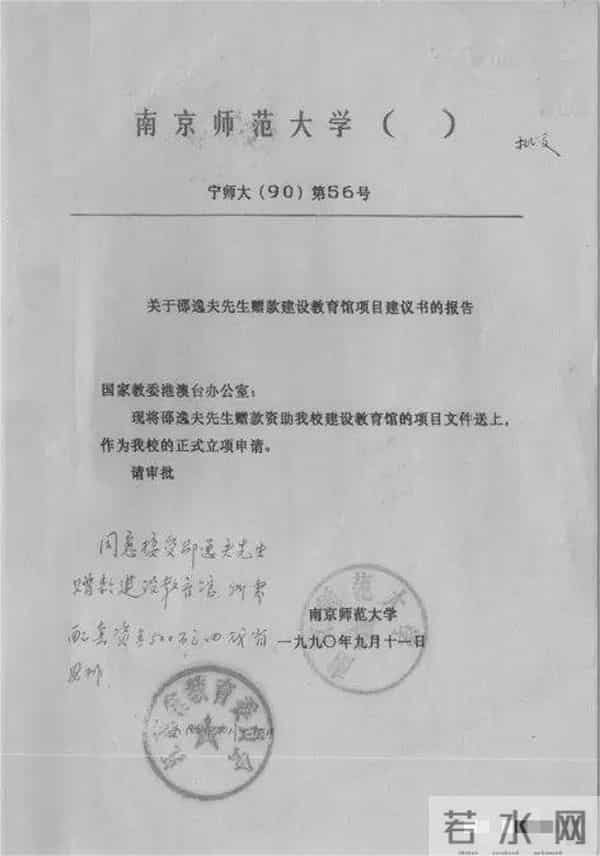 南京师范大学（ ）
宁师大（90）第56号
关于邵逸夫先生赠款建设教育馆项目建议书的报告
国家教委港澳台办公室：
现将邵逸夫先生赠款资助我校建设教育馆的项目文件送上，
作为我校的正式立项申请。
请审批
同意接受邵逸夫先生
赠款建设教育馆 所需
配套资金500万由我省
南京师范大学
一九九〇年九月十一日
教育委员会
若水网